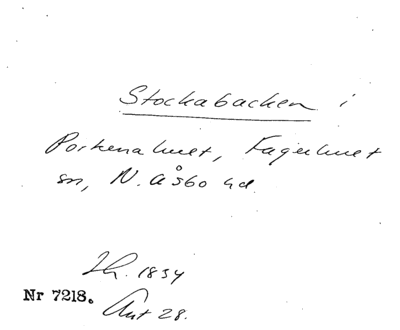 Stockabacken i
Porkenahult, Fagerhult
sn, N. Åsbo hd.
Th. 1834
Nr 7218.
Ant 28.